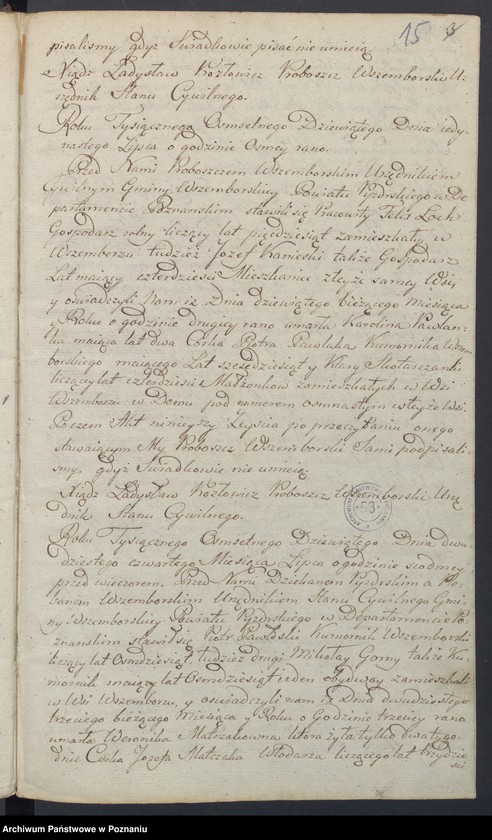 15
pisalismy gdyż Swiadkowie pisać nie umieią.
Xiądz Ladysław Kozłowicz Proboszcz Wszemborski U-
rzędnik Stanu Cywilnego.
Roku Tysiącznego Osmsetnego Dziewiątego Dnia iedy-
nastego Lipca o godzinie Osmey rano.
Przed Nami Proboszczem Wszemborskim Urzędnikiem
Cywilnym Gminy Wszemborskiey Powiatu Pyzdrskiego w De-
partamencie Poznanskim stawili się Pracowity Felix
Gospodarz rolny liczący lat pięćdziesiąt zamieszkały w
Wszemborzu tudzież Jozef Kanieski także Gospodarz
Lat maiący czterdzieści Mieszkaniec teyże samey Wsi,
y oswiadczyli Nam iż Dnia dziewiątego bieżącego Miesiąca
y Roku o godzinie drugiey rano umarła Karolina Pawlan-
ka maiąca lat dwa Corka Piotra Pawlaka Komornika Wszem
borskiego maiącego Lat szescdziesiąt y Klary
liczącey lat czterdziesci Małżonkow zamieszkałych w Wsi
Wszemborzu w Domu pod numerem osmnastym w teyże Wsi.
Poczem Akt ninieyszy Zeyscia po przeczytaniu onego
stawaiącym My Proboszcz Wszemborski Sami podpisali-
smy, gdyż Swiadkowie nie umieią.
Xiądz Ladysław Kozłowicz Proboszcz Wszemborski Urzę
dnik Stanu Cywilnego.
Roku Tysiącznego Osmsetnego Dziewiątego Dnia dwu-
dziestego czwartego Miesiąca Lipca o godzinie siodmey
przed wieczorem. Przed Nami Dziekanem Pyzdrskim a Ple-
banem Wszemborskim Urzędnikiem Stanu Cywilnego Gmi-
ny Wszemborskiey Powiatu Pyzdrskiego w Departamencie Po-
znanskim stawił się Piotr Komornik Wszemborski
liczący lat Osmdziesiąt, tudzież drugi Mikołay Gorny także Ko-
mornik maiący lat Osmdziesiąt ieden obydway zamieszkali
w Wsi Wszemborzu, y oswiadczyli nam iż Dnia dwudziestego
trzeciego bieżącego Miesiąca y Roku o Godzinie trzeciey rano
umarła Weronika Matczakowna ktora żyła tylko dwa tygo-
dnie Corka Jozefa Matczaka Włodarza liczącego lat trzydzie
sci
Archiwum Państwowe w Poznaniu
Archiwum Państwowe w Poznaniu